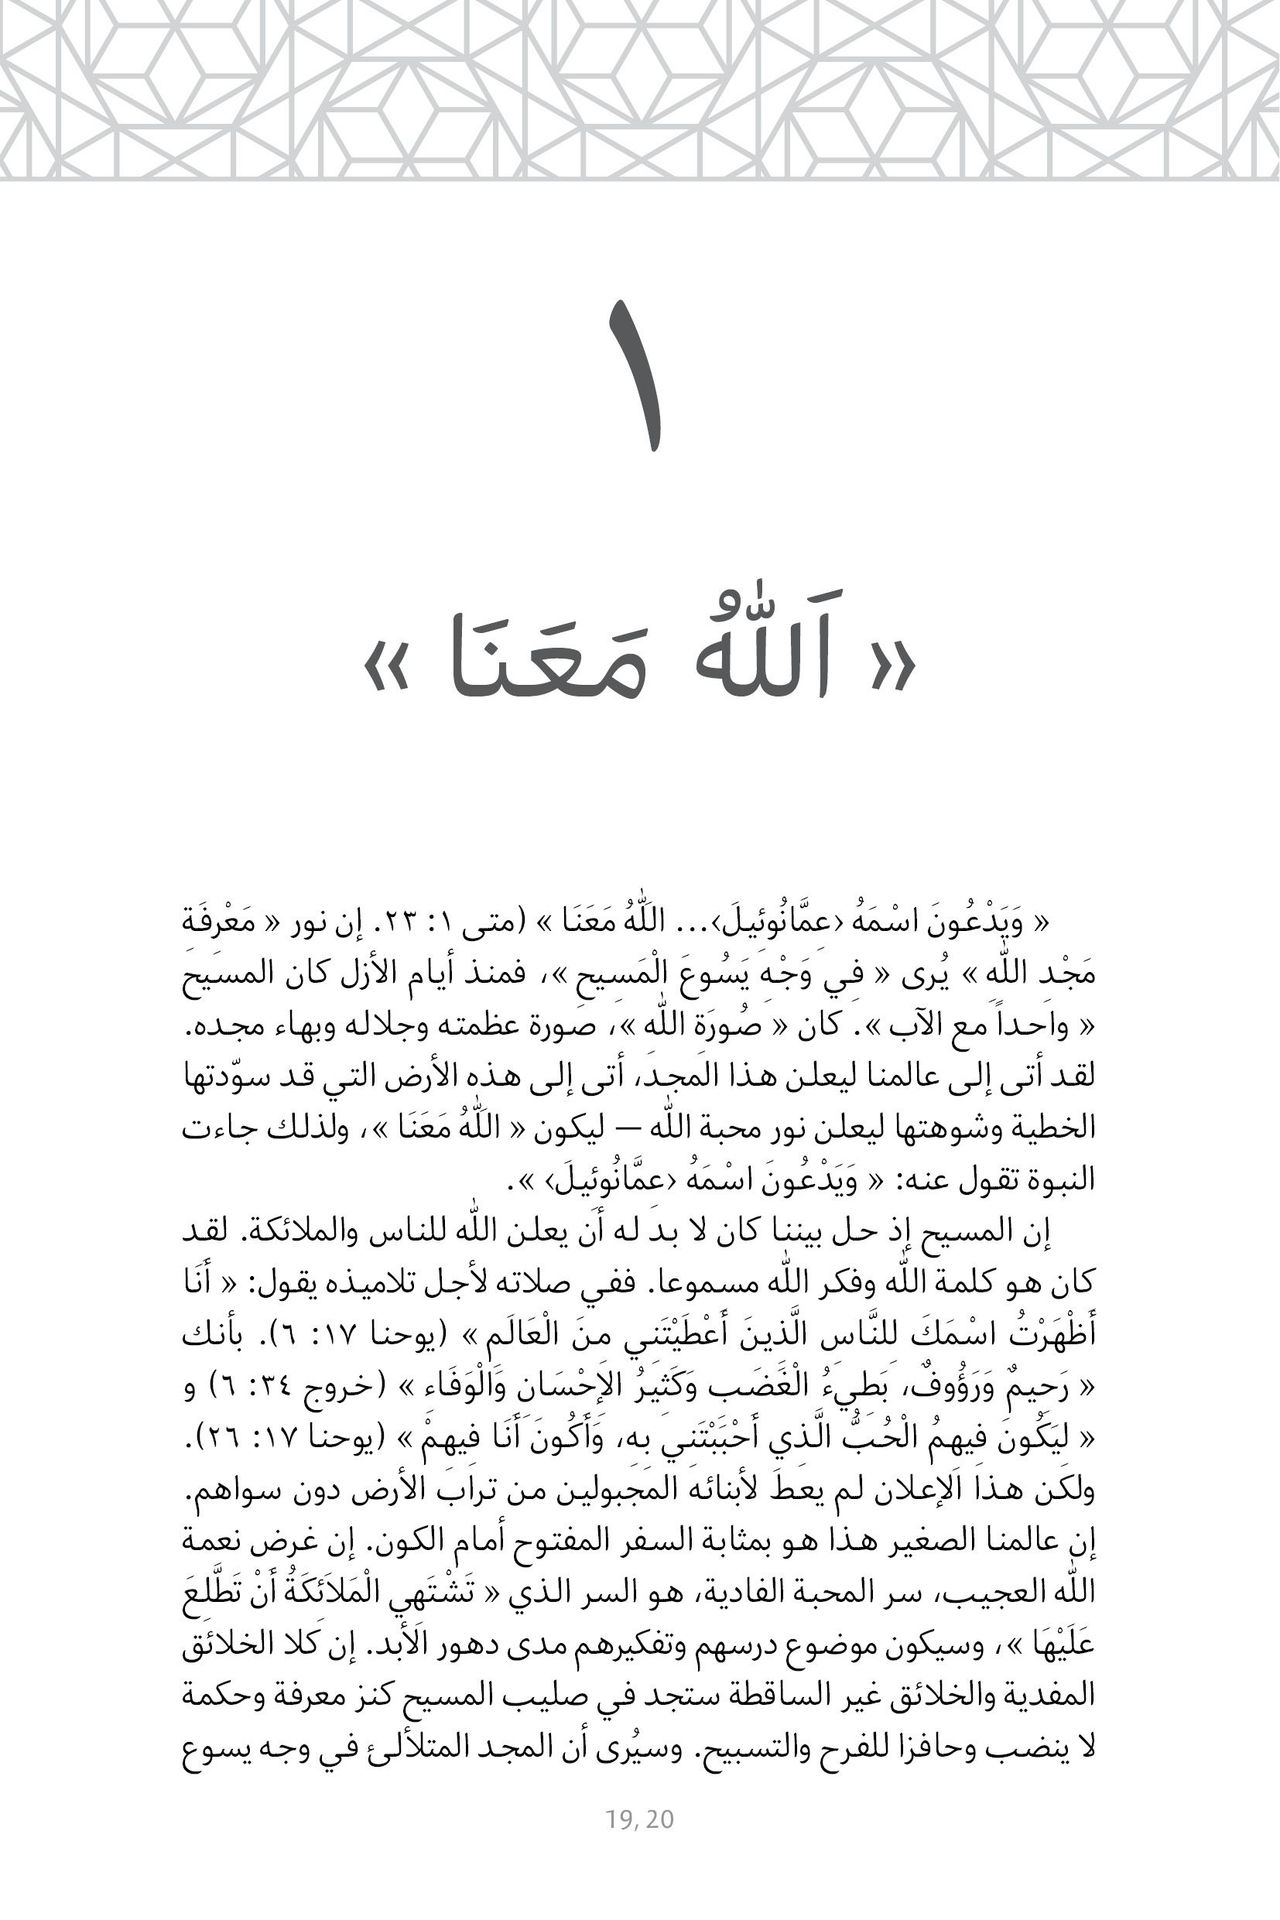 ١
« اَللّٰهُ مَعَنَا »
« وَيَدْعُونَ اسْمَهُ ‹عِمَّانُوئِيلَ›... اللّٰهُ مَعَنَا » (متى ١: ٢٣. إن نور « مَعْرِفَةِ
مَجْدِ اللّٰهِ » يُرى « فِي وَجْهِ يَسُوعَ الْمَسِيحِ »، فمنذ أيام الأزل كان المسيح
« واحداً مع الآب ». كان « صُورَةِ اللّٰه »، صورة عظمته وجلاله وبهاء مجده.
لقد أتى إلى عالمنا ليعلن هذا المجد، أتى إلى هذه الأرض التي قد سوّدتها
الخطية وشوهتها ليعلن نور محبة اللّٰه — ليكون « اللّٰهُ مَعَنَا »، ولذلك جاءت
النبوة تقول عنه: « وَيَدْعُونَ اسْمَهُ ‹عِمَّانُوئِيلَ› ».
إن المسيح إذ حل بيننا كان لا بد له أن يعلن اللّٰه للناس والملائكة. لقد
كان هو كلمة اللّٰه وفكر اللّٰه مسموعا. ففي صلاته لأجل تلاميذه يقول: « أَنَا
أَظْهَرْتُ اسْمَكَ لِلنَّاسِ الَّذِينَ أَعْطَيْتَنِي مِنَ الْعَالَمِ » (يوحنا ١٧: ٦). بأنك
« رَحِيمٌ وَرَؤُوفٌ، بَطِيءُ الْغَضَبِ وَكَثِيرُ الإِحْسَانِ وَالْوَفَاءِ » (خروج ٣٤: ٦) و
« لِيَكُونَ فِيهِمُ الْحُبُّ الَّذِي أَحْبَبْتَنِي بِهِ، وَأَكُونَ أَنَا فِيهِمْ » (يوحنا ١٧: ٢٦).
ولكن هذا الإعلان لم يعط لأبنائه المجبولين من تراب الأرض دون سواهم.
إن عالمنا الصغير هذا هو بمثابة السفر المفتوح أمام الكون. إن غرض نعمة
اللّٰه العجيب، سر المحبة الفادية، هو السر الذي « تَشْتَهِي الْمَلاَئِكَةُ أَنْ تَطَّلِعَ
عَلَيْهَا »، وسيكون موضوع درسهم وتفكيرهم مدى دهور الأبد. إن كلا الخلائق
المفدية والخلائق غير الساقطة ستجد في صليب المسيح كنز معرفة وحكمة
لا ينضب وحافزا للفرح والتسبيح. وسيُرى أن المجد المتلألئ في وجه يسوع
19, 20